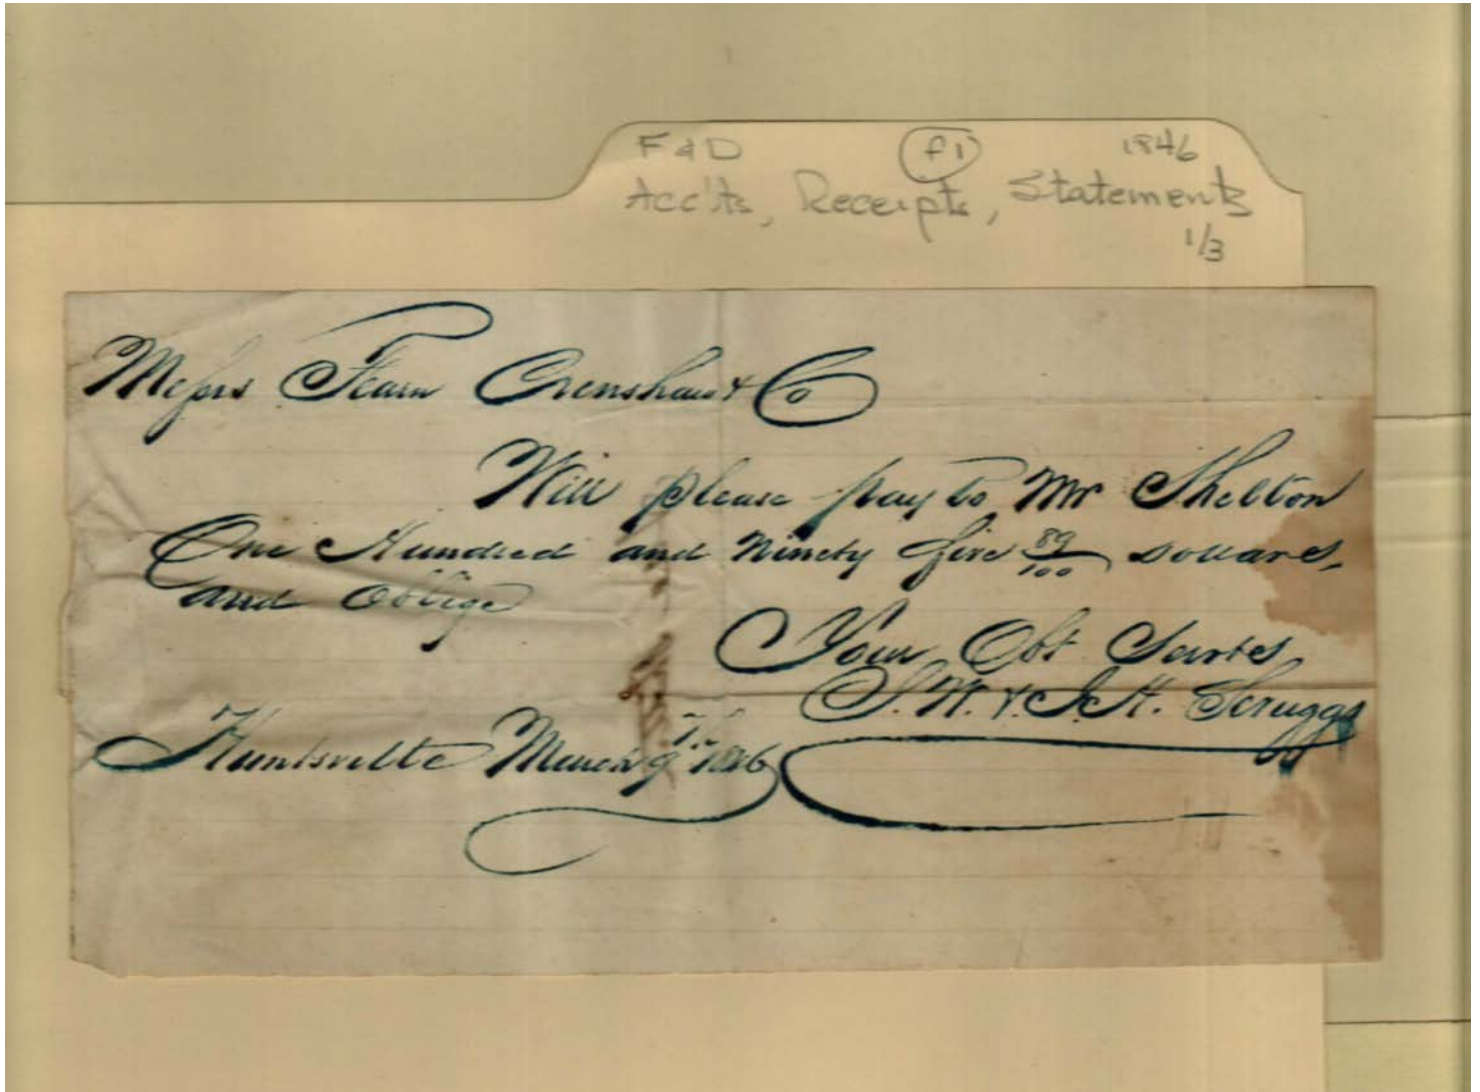 F & D (f1) 1846
Acc'ts, Receipts, Statements
1/3
Messrs Fearn Crenshaw & Co
Will please pay to Mr Shelton
One Hundred and Ninety five 89/100 Dollars,
and Oblige
Your Obt Servts
S. W. & J. H. Scruggs
Huntsville March 9th 1846